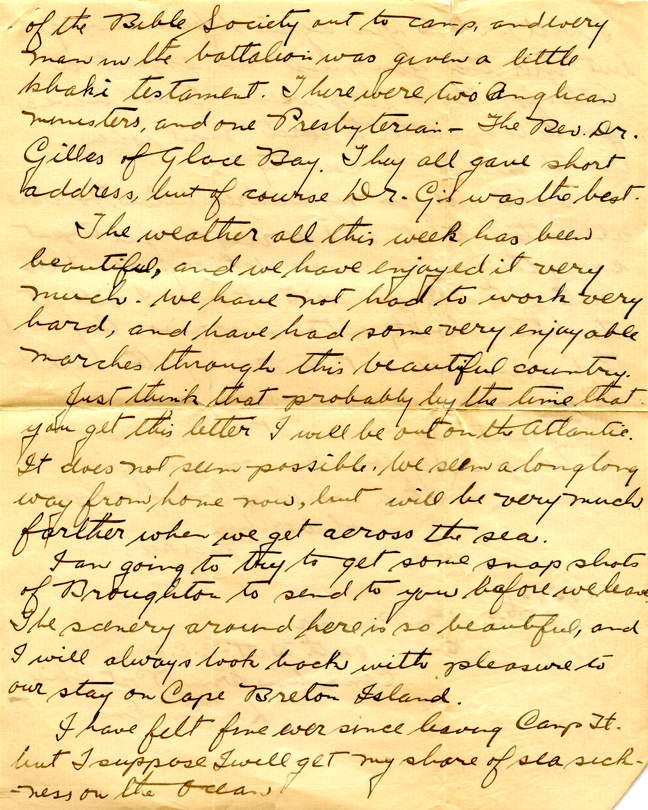 of the Bible Society out to camp, and every
man in the battalion was given a little
khaki testament. There were two Anglican
ministers, and one Presbyterian - The Rev. Dr.
Gilles of Glace Bay. They all gave short
address, but of course Dr. G. was the best.
The weather all this week has been
beautiful, and we have enjoyed it very
much. We have not had to work very
hard, and have had some very enjoyable
marches through this beautiful country.
Just think that probably by the time that
you get this letter I will be out on the Atlantic.
It does not seem possible. We seem a long long
way from home now, but will be very much
farther when we get across the sea.
I am going to try to get some snap shots
of Broughton to send to you before we leave
The scenery around here is so beautiful, and
I will always look back with pleasure to
our stay on Cape Breton Island.
I have felt fine ever since leaving Camp
but I suppose I will get my share of sea sick-
-ness on the Ocean